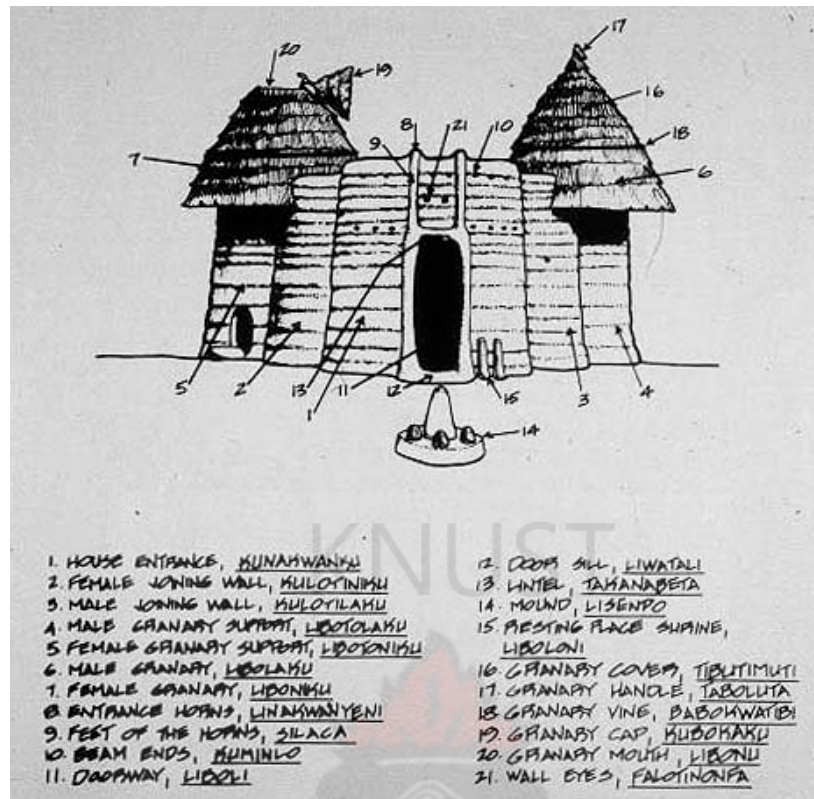 17
20
19
16
8
21
10
9
18
7
6
5
2
13
1
11
12
15
3
4
14
KNUST
1. HOUSE ENTRANCE, KUNAKWANKU
2. FEMALE JOINING WALL, KULOTINIKU
3. MALE JOINING WALL, KULOTILAKU
4. MALE GRANARY SUPPORT, LIBOTOLAKU
5 FEMALE GRANARY SUPPORT, LIBOTONIKU
6. MALE GRANARY, LIBOLAKU
7. FEMALE GRANARY, LIBONIKU
8 ENTRANCE HORNS, LINAKWANYENI
9. FEET OF THE HORNS, SILACA
10. BEAM ENDS, KUMINLO
11. DOORWAY, LIBOLI
12. DOOR SILL, LIWATALI
13. LINTEL, TAKANABETA
14. MOUND, LISENPO
15. RESTING PLACE SHRINE,
LIBOLONI
16. GRANARY COVER, TIBUTIMUTI
17. GRANARY HANDLE, TABOLUTA
18. GRANARY VINE, BABOKWATIBI
19. GRANARY CAP, KUBOKAKU
20. GRANARY MOUTH, LIBONU
21. WALL EYES, FALOTINONFA